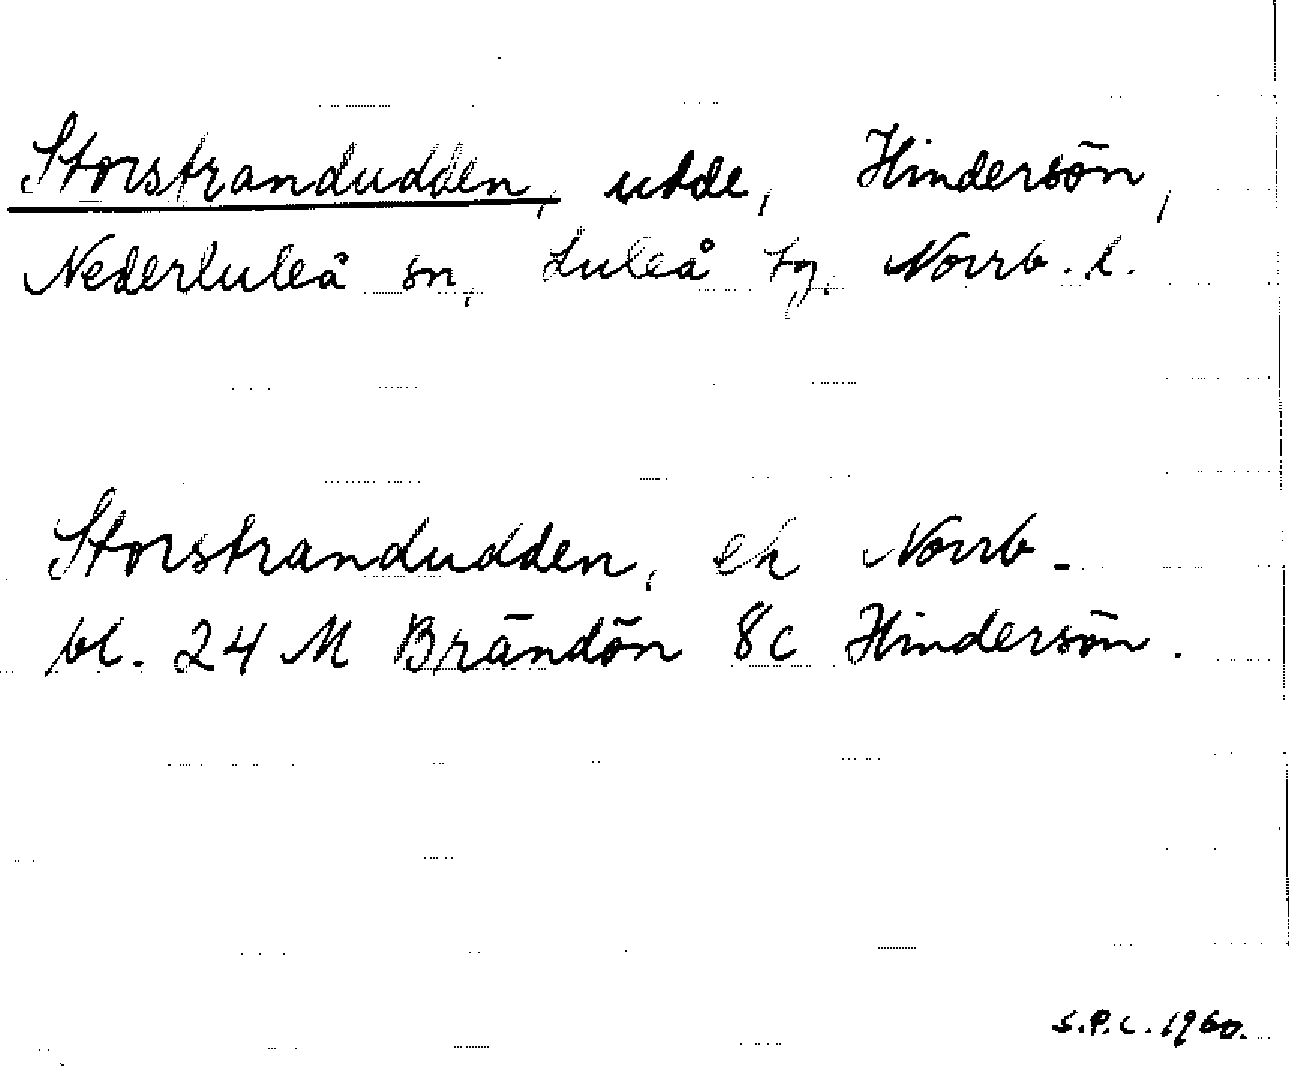 Storstrandudden, udde, Hindersön,
Nederluleå sn, Luleå tg. Norrb. l.
Storstrandudden, ek Norrb-
bl. 24 M Brändön 8c Hindersön.
S.P.C. 1960.